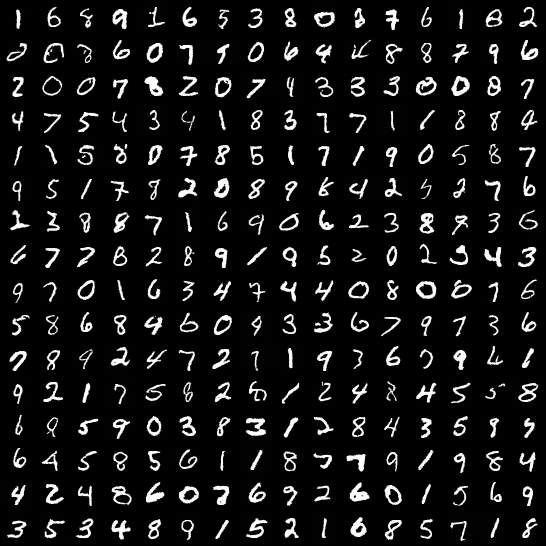 1 6 8 9 1 6 5 3 8 0 8 7 6 1 8 2
2 0 8 6 0 7 9 0 6 9 4 8 8 7 9 6
2 0 0 7 8 2 0 7 4 3 3 3 0 0 8 7
4 7 5 4 3 4 1 8 3 7 7 1 1 8 8 4
1 1 5 8 0 7 8 5 1 7 1 9 0 5 8 7
9 5 1 7 8 2 0 8 9 8 4 2 5 2 7 6
2 3 8 8 7 1 6 9 0 6 2 3 8 9 3 6
6 7 7 8 2 8 9 1 9 5 2 0 2 5 4 3
9 7 0 1 6 3 4 7 4 4 0 8 0 8 7 6
5 8 6 8 4 6 0 9 3 3 6 7 9 7 3 6
7 8 9 2 4 7 2 7 1 9 3 6 7 9 6 1
9 2 1 7 5 8 2 8 1 2 4 8 4 5 5 8
6 9 5 9 0 3 8 3 1 2 8 4 3 5 9 9
6 4 5 8 5 6 1 1 8 7 7 9 1 9 8 4
4 2 4 8 6 0 7 6 9 2 6 0 1 5 6 9
3 5 3 4 8 9 1 5 2 1 6 8 5 7 1 8